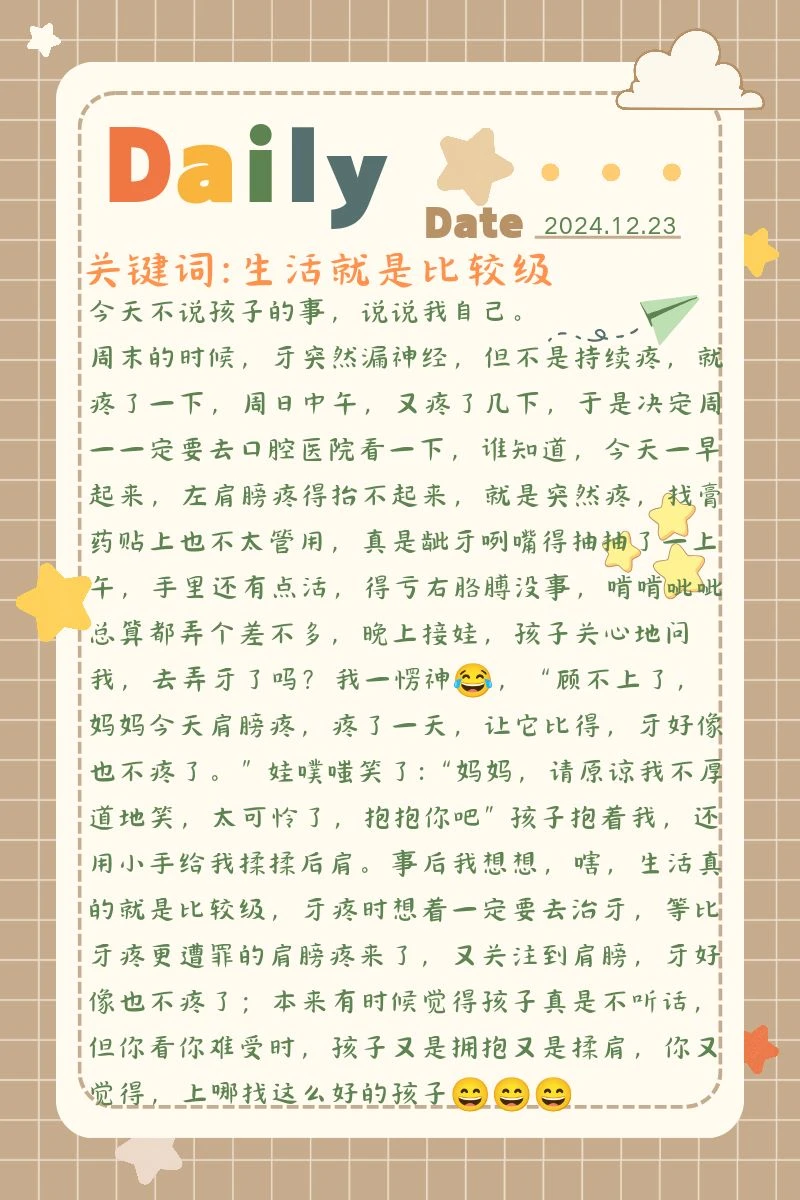 Daily
Date 2024.12.23
关键词:生活就是比较级
今天不说孩子的事，说说我自己。
周末的时候，牙突然漏神经，但不是持续疼，就
疼了一下，周日中午，又疼了几下，于是决定周
一一定要去口腔医院看一下，谁知道，今天一早
起来，左肩膀疼得抬不起来，就是突然疼，找膏
药贴上也不太管用，真是龇牙咧嘴得抽抽了一上
午，手里还有点活，得亏右胳膊没事，啃啃呲呲
总算都弄个差不多，晚上接娃，孩子关心地问
我，去弄牙了吗？我一愣神😂，“顾不上了，
妈妈今天肩膀疼，疼了一天，让它比得，牙好像
也不疼了。”娃噗嗤笑了:“妈妈，请原谅我不厚
道地笑，太可怜了，抱抱你吧”孩子抱着我，还
用小手给我揉揉后肩。事后我想想，嗐，生活真
的就是比较级，牙疼时想着一定要去治牙，等比
牙疼更遭罪的肩膀疼来了，又关注到肩膀，牙好
像也不疼了；本来有时候觉得孩子真是不听话，
但你看你难受时，孩子又是拥抱又是揉肩，你又
觉得，上哪找这么好的孩子😄😄😄